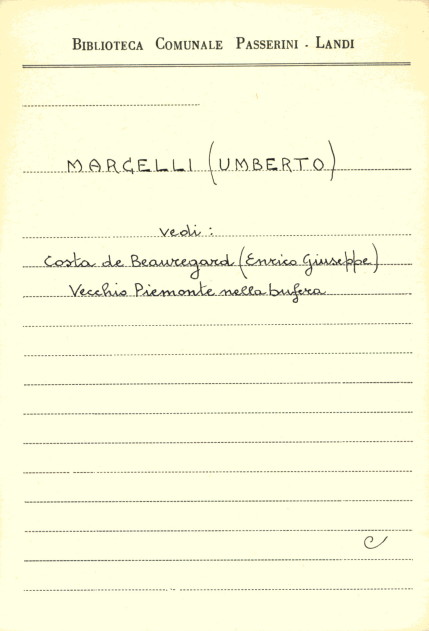 BIBLIOTECA COMUNALE PASSERINI - LANDI
MARCELLI (UMBERTO)
vedi :
Costa de Beauregard (Enrico Giuseppe)
Vecchio Piemonte nella bufera
C